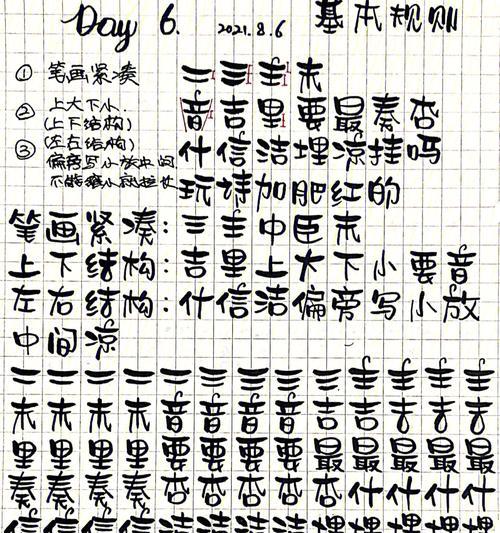 Day 6. 2021.8.6 基本规则
① 笔画紧凑 二三主未
② 上大下小. 音吉里要最奏杏
(上下结构)
③ (左右结构) 什信洁埋凉挂吗
偏旁写小放中间
不能 玩请加肥红的
笔画紧凑:三主中臣未
上下结构:吉里上大下小要音
左右结构:什信洁偏旁写小放
中间凉
二二二二二三三三三主主主主
未未未未音音音音吉吉吉吉
里里里里要要要要最最最最
奏奏奏奏杏杏杏杏什什什什
信信信信洁洁洁洁埋埋埋埋